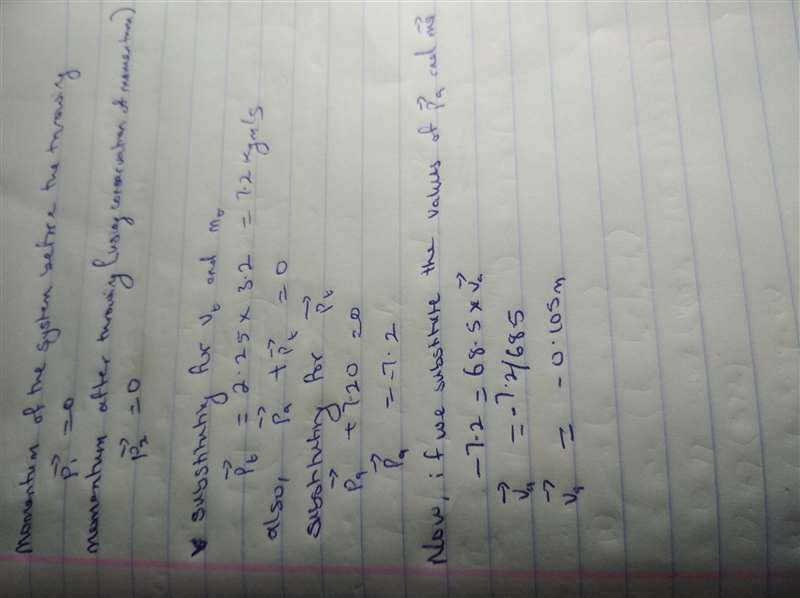 Momentum of the system before the throwing
P⃗₁ = 0
Momentum after throwing (using conservation of momentum)
P⃗₂ = 0
substituting for v_b and m_b
P⃗_b = 2.25 × 3.2 = 7.2 Kgm/s
also, P⃗_a + P⃗_b = 0
Substituting for P⃗_b
P⃗_a + 7.20 = 0
P⃗_a = -7.2
Now, if we substitute the values of P⃗_a and m⃗_a
-7.2 = 68.5 × v⃗_a
v⃗_a = -7.2/685
v⃗_a = -0.105 m